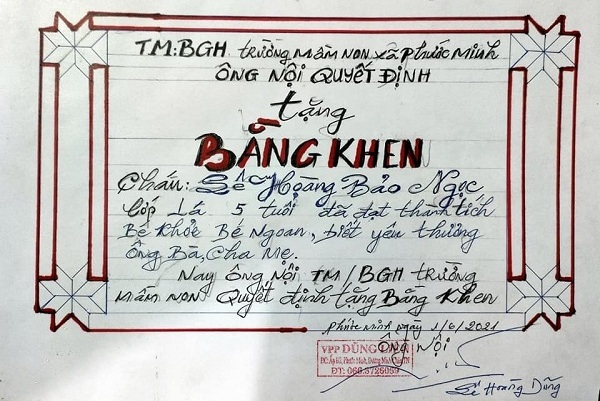 TM:BGH trường mầm non xã Phước Minh
ÔNG NỘI QUYẾT ĐỊNH
tặng
BẰNG KHEN
Cháu: Lê Hoàng Bảo Ngọc
Lớp Lá 5 tuổi đã đạt thành tích
Bé Khỏe Bé Ngoan, biết yêu thương
Ông Bà, Cha Mẹ.
Nay Ông Nội TM/BGH trường
mầm non Quyết định tặng Bằng Khen
Phước Minh ngày 1/6/2021
Ông Nội
VPP DŨNG
ĐT:
Lê Hoàng Dũng